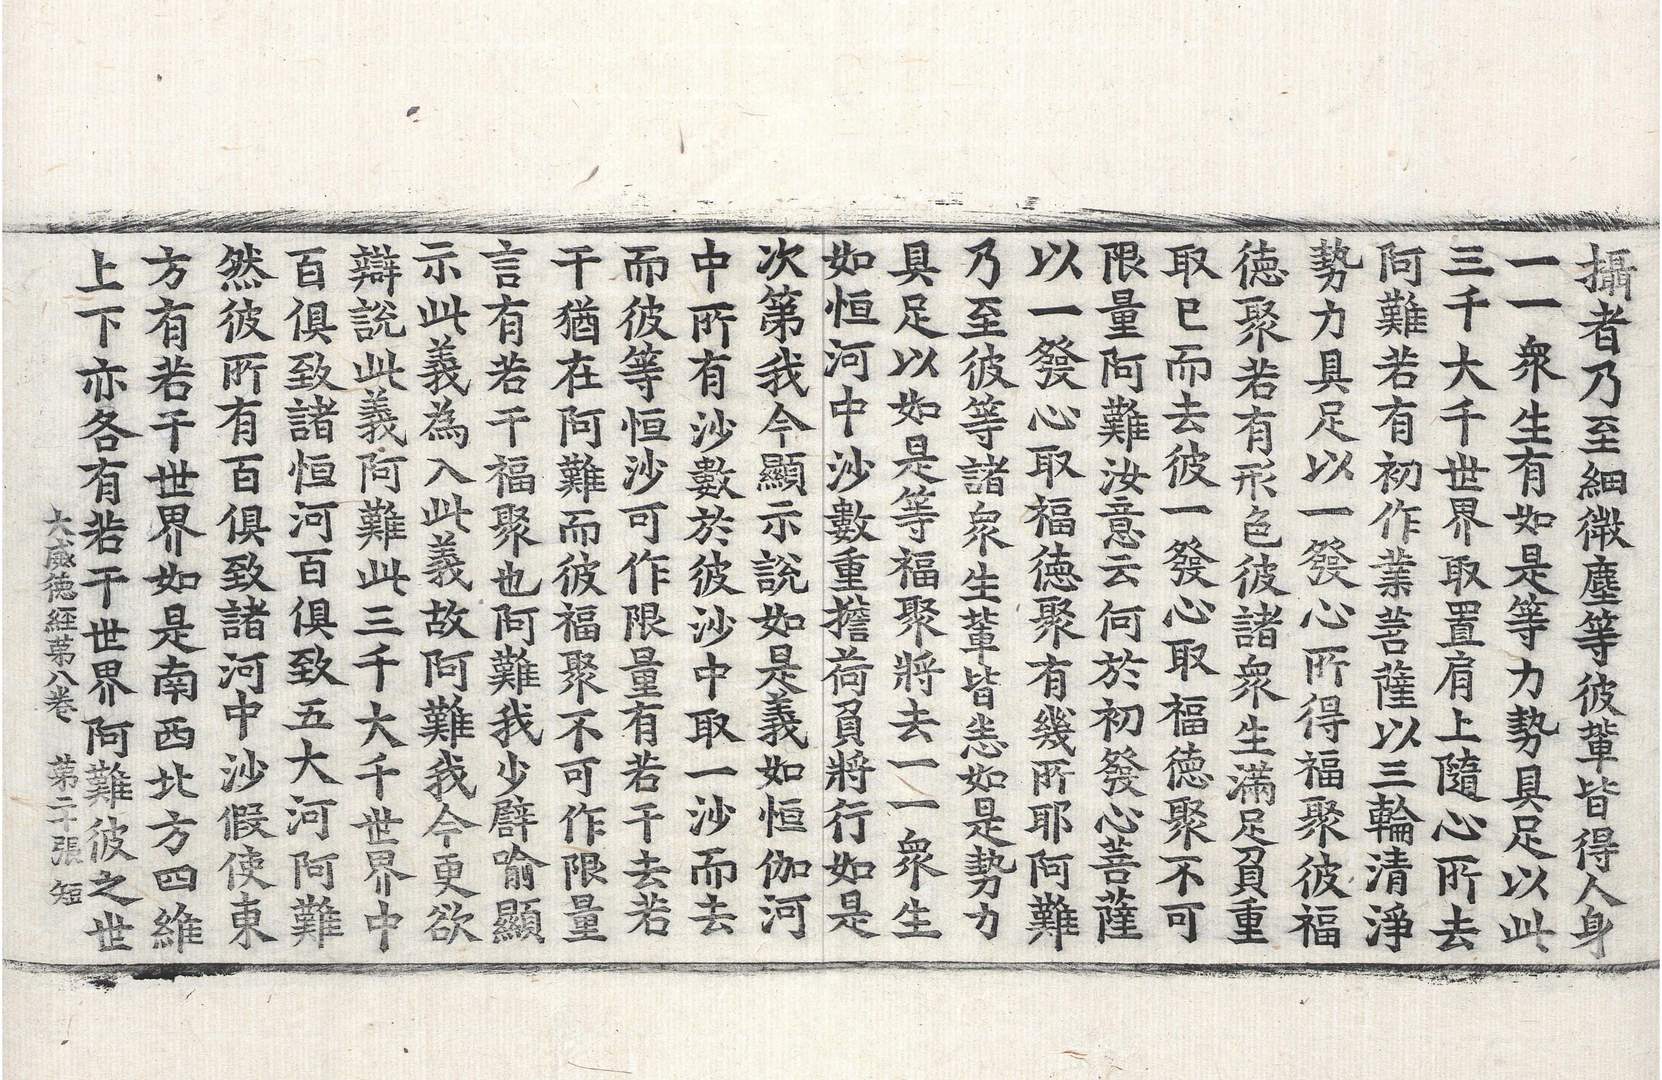 攝者乃至細微塵等彼輩皆得人身
一一衆生有如是等力勢具足以此
三千大千世界取置肩上隨心所去
阿難若有初作業菩薩以三輪清淨
勢力具足以一發心所得福聚彼福
德聚若有形色彼諸衆生滿足負重
取已而去彼一發心取福德聚不可
限量阿難汝意云何於初發心菩薩
以一發心取福德聚有幾所耶阿難
乃至彼等諸衆生輩皆悉如是勢力
具足以如是等福聚將去一一衆生
如恒河中沙數重擔荷負將行如是
次第我今顯示說如是義如恒伽河
中所有沙數於彼沙中取一沙而去
而彼等恒沙可作限量有若干去若
干猶在阿難而彼福聚不可作限量
言有若干福聚也阿難我少譬喻顯
示此義為入此義故阿難我今更欲
辯說此義阿難此三千大千世界中
百俱致諸恒河百俱致五大河阿難
然彼所有百俱致諸河中沙假使東
方有若干世界如是南西北方四維
上下亦各有若干世界阿難彼之世
大威德經第八卷　第二十張　短